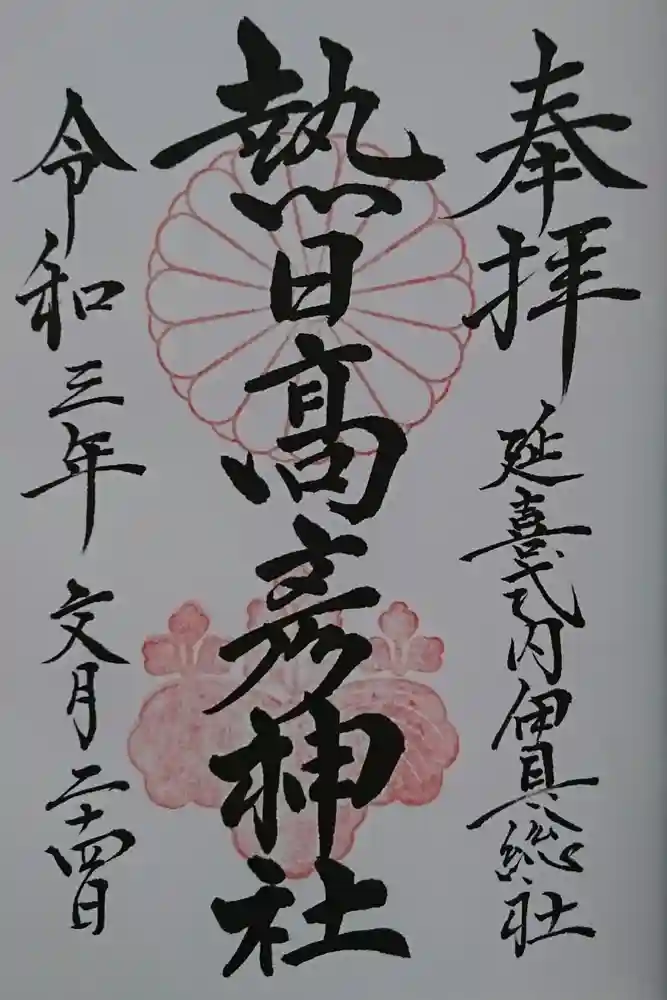 奉拝
延喜式内伊具総社
熱日高彦神社
令和三年文月二十四日